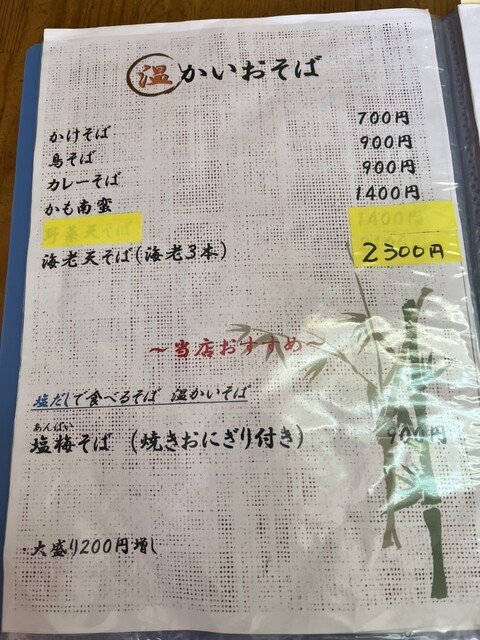 温かいおそば
かけそば 700円
鳥そば 900円
カレーそば 900円
かも南蛮 1400円
野菜天そば 1400円
海老天そば(海老3本) 2300円
～当店おすすめ～
塩だしで食べるそば 温かいそば
あんばい
塩梅そば (焼きおにぎり付き) 900円
・大盛り200円増し